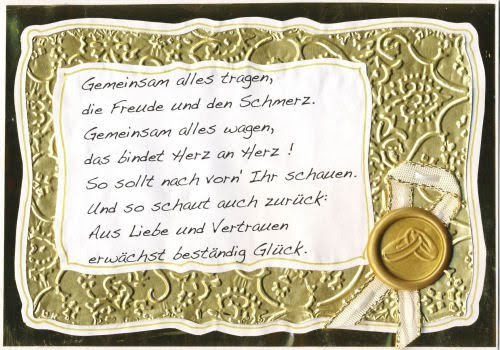 Gemeinsam alles tragen,
die Freude und den Schmerz.
Gemeinsam alles wagen,
das bindet Herz an Herz !
So sollt nach vorn' Ihr schauen.
Und so schaut auch zurück:
Aus Liebe und Vertrauen
erwächst beständig Glück.